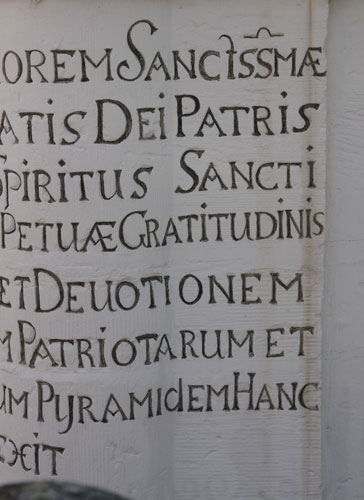 OREM SANCTSSMÆ
ATIS DEI PATRIS
SPIRITUS SANCTI
PETUÆ GRATITUDINIS
ET DEUOTIONEM
M PATRIOTARUM ET
UM PYRAMIdEM HANC
EXIT